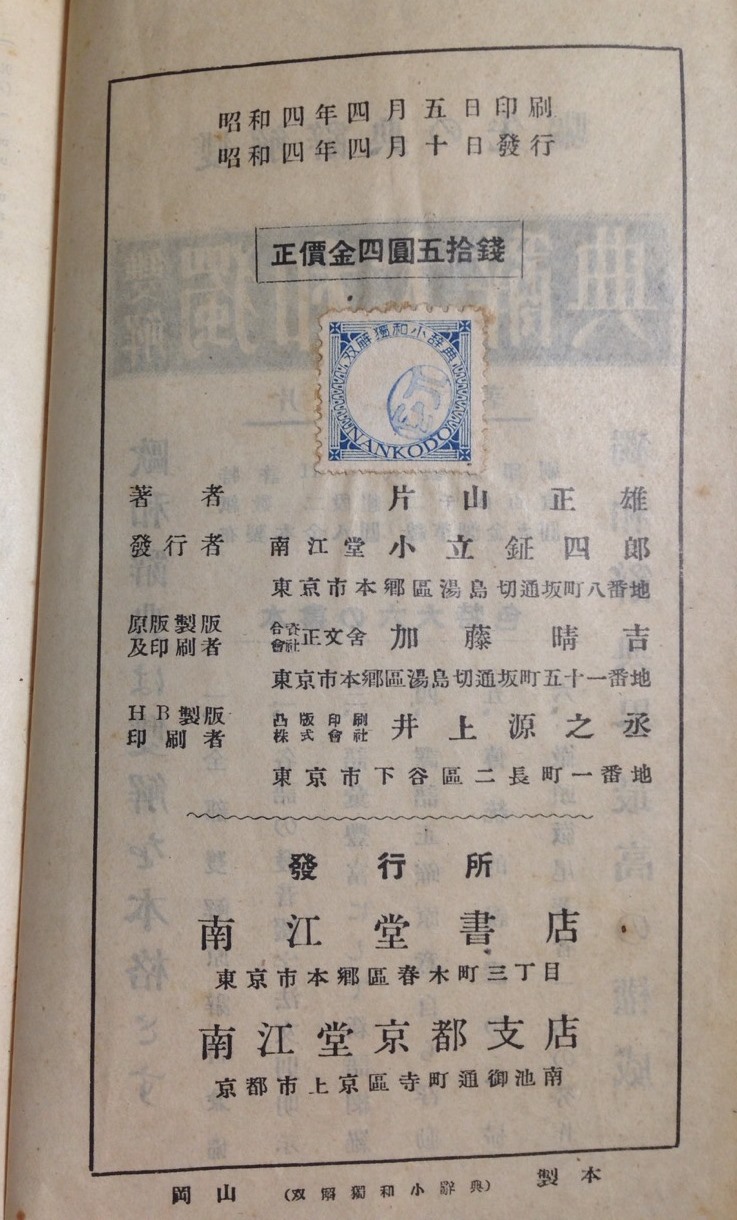 昭和四年四月五日印刷
昭和四年四月十日發行
正價金四圓五拾錢
双解獨和小辭典
NANKODO
著者 片山正雄
發行者 南江堂 小立鉦四郎
東京市本郷區湯島切通坂町八番地
原版製版及印刷者 合資會社正文舍 加藤晴吉
東京市本郷區湯島切通坂町五十一番地
HB製版印刷者 凸版印刷株式會社 井上源之丞
東京市下谷區二長町一番地
發行所
南江堂書店
東京市本郷區春木町三丁目
南江堂京都支店
京都市上京區寺町通御池南
岡山 (双解獨和小辭典) 製本